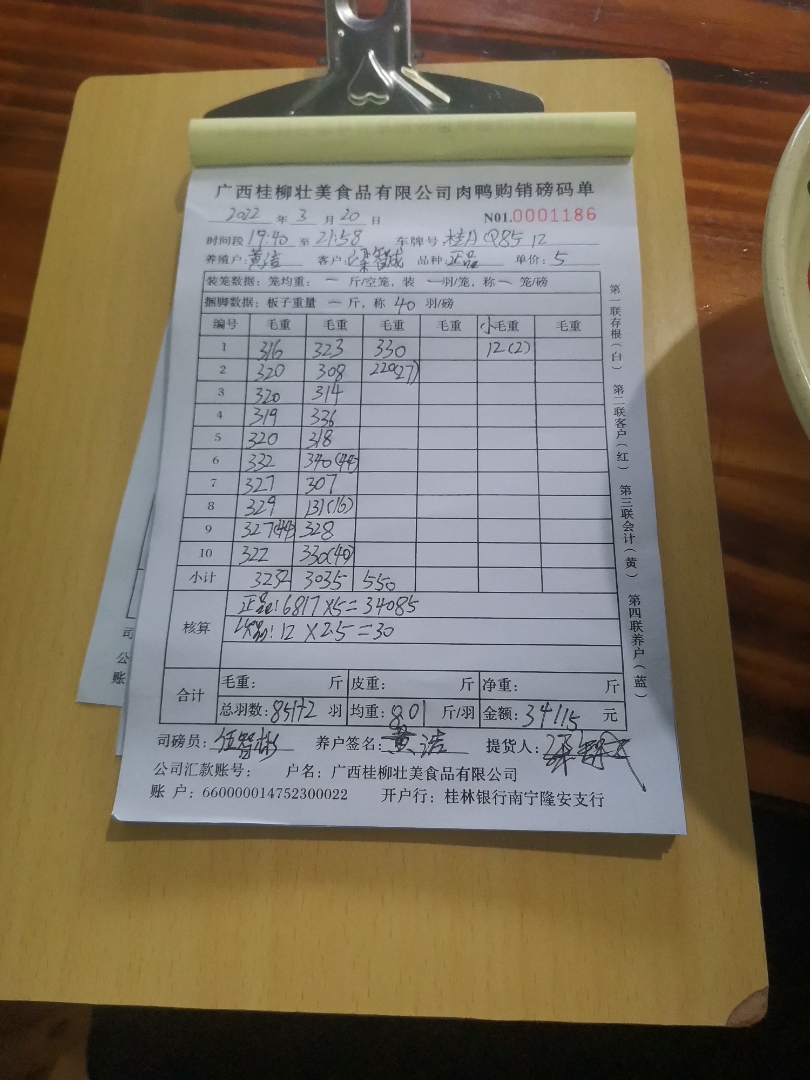 广西桂柳壮美食品有限公司肉鸭购销磅码单
2022 年 3 月 20 日 N01.0001186
时间段 19:40 至 21:58 车牌号 桂A Q85 12
养殖户: 黄洁 客户: 梁智成 品种: 正品 单价: 5
装笼数据: 笼均重: 一 斤/空笼, 装 一羽/笼, 称一 笼/磅
捆脚数据: 板子重量 一 斤, 称 40 羽/磅
编号 毛重 毛重 毛重 毛重 小毛重 毛重
1 316 323 330 12(2)
2 320 308 220(27)
3 320 314
4 319 336
5 320 318
6 332 340(44)
7 327 307
8 329 131(16)
9 327(44) 328
10 322 330(40)
小计 3232 3035 550
核算 正品: 6817×5=34085
次品: 12×2.5=30
合计 毛重: 斤 皮重: 斤 净重: 斤
总羽数: 851+2 羽 均重: 8.01 斤/羽 金额: 34115 元
司磅员: 伍智彬 养户签名: 黄洁 提货人:
公司汇款账号: 户名: 广西桂柳壮美食品有限公司
账 户: 660000014752300022 开户行: 桂林银行南宁隆安支行
第一联存根(白) 第二联客户(红) 第三联会计(黄) 第四联养户(蓝)
司
公
账